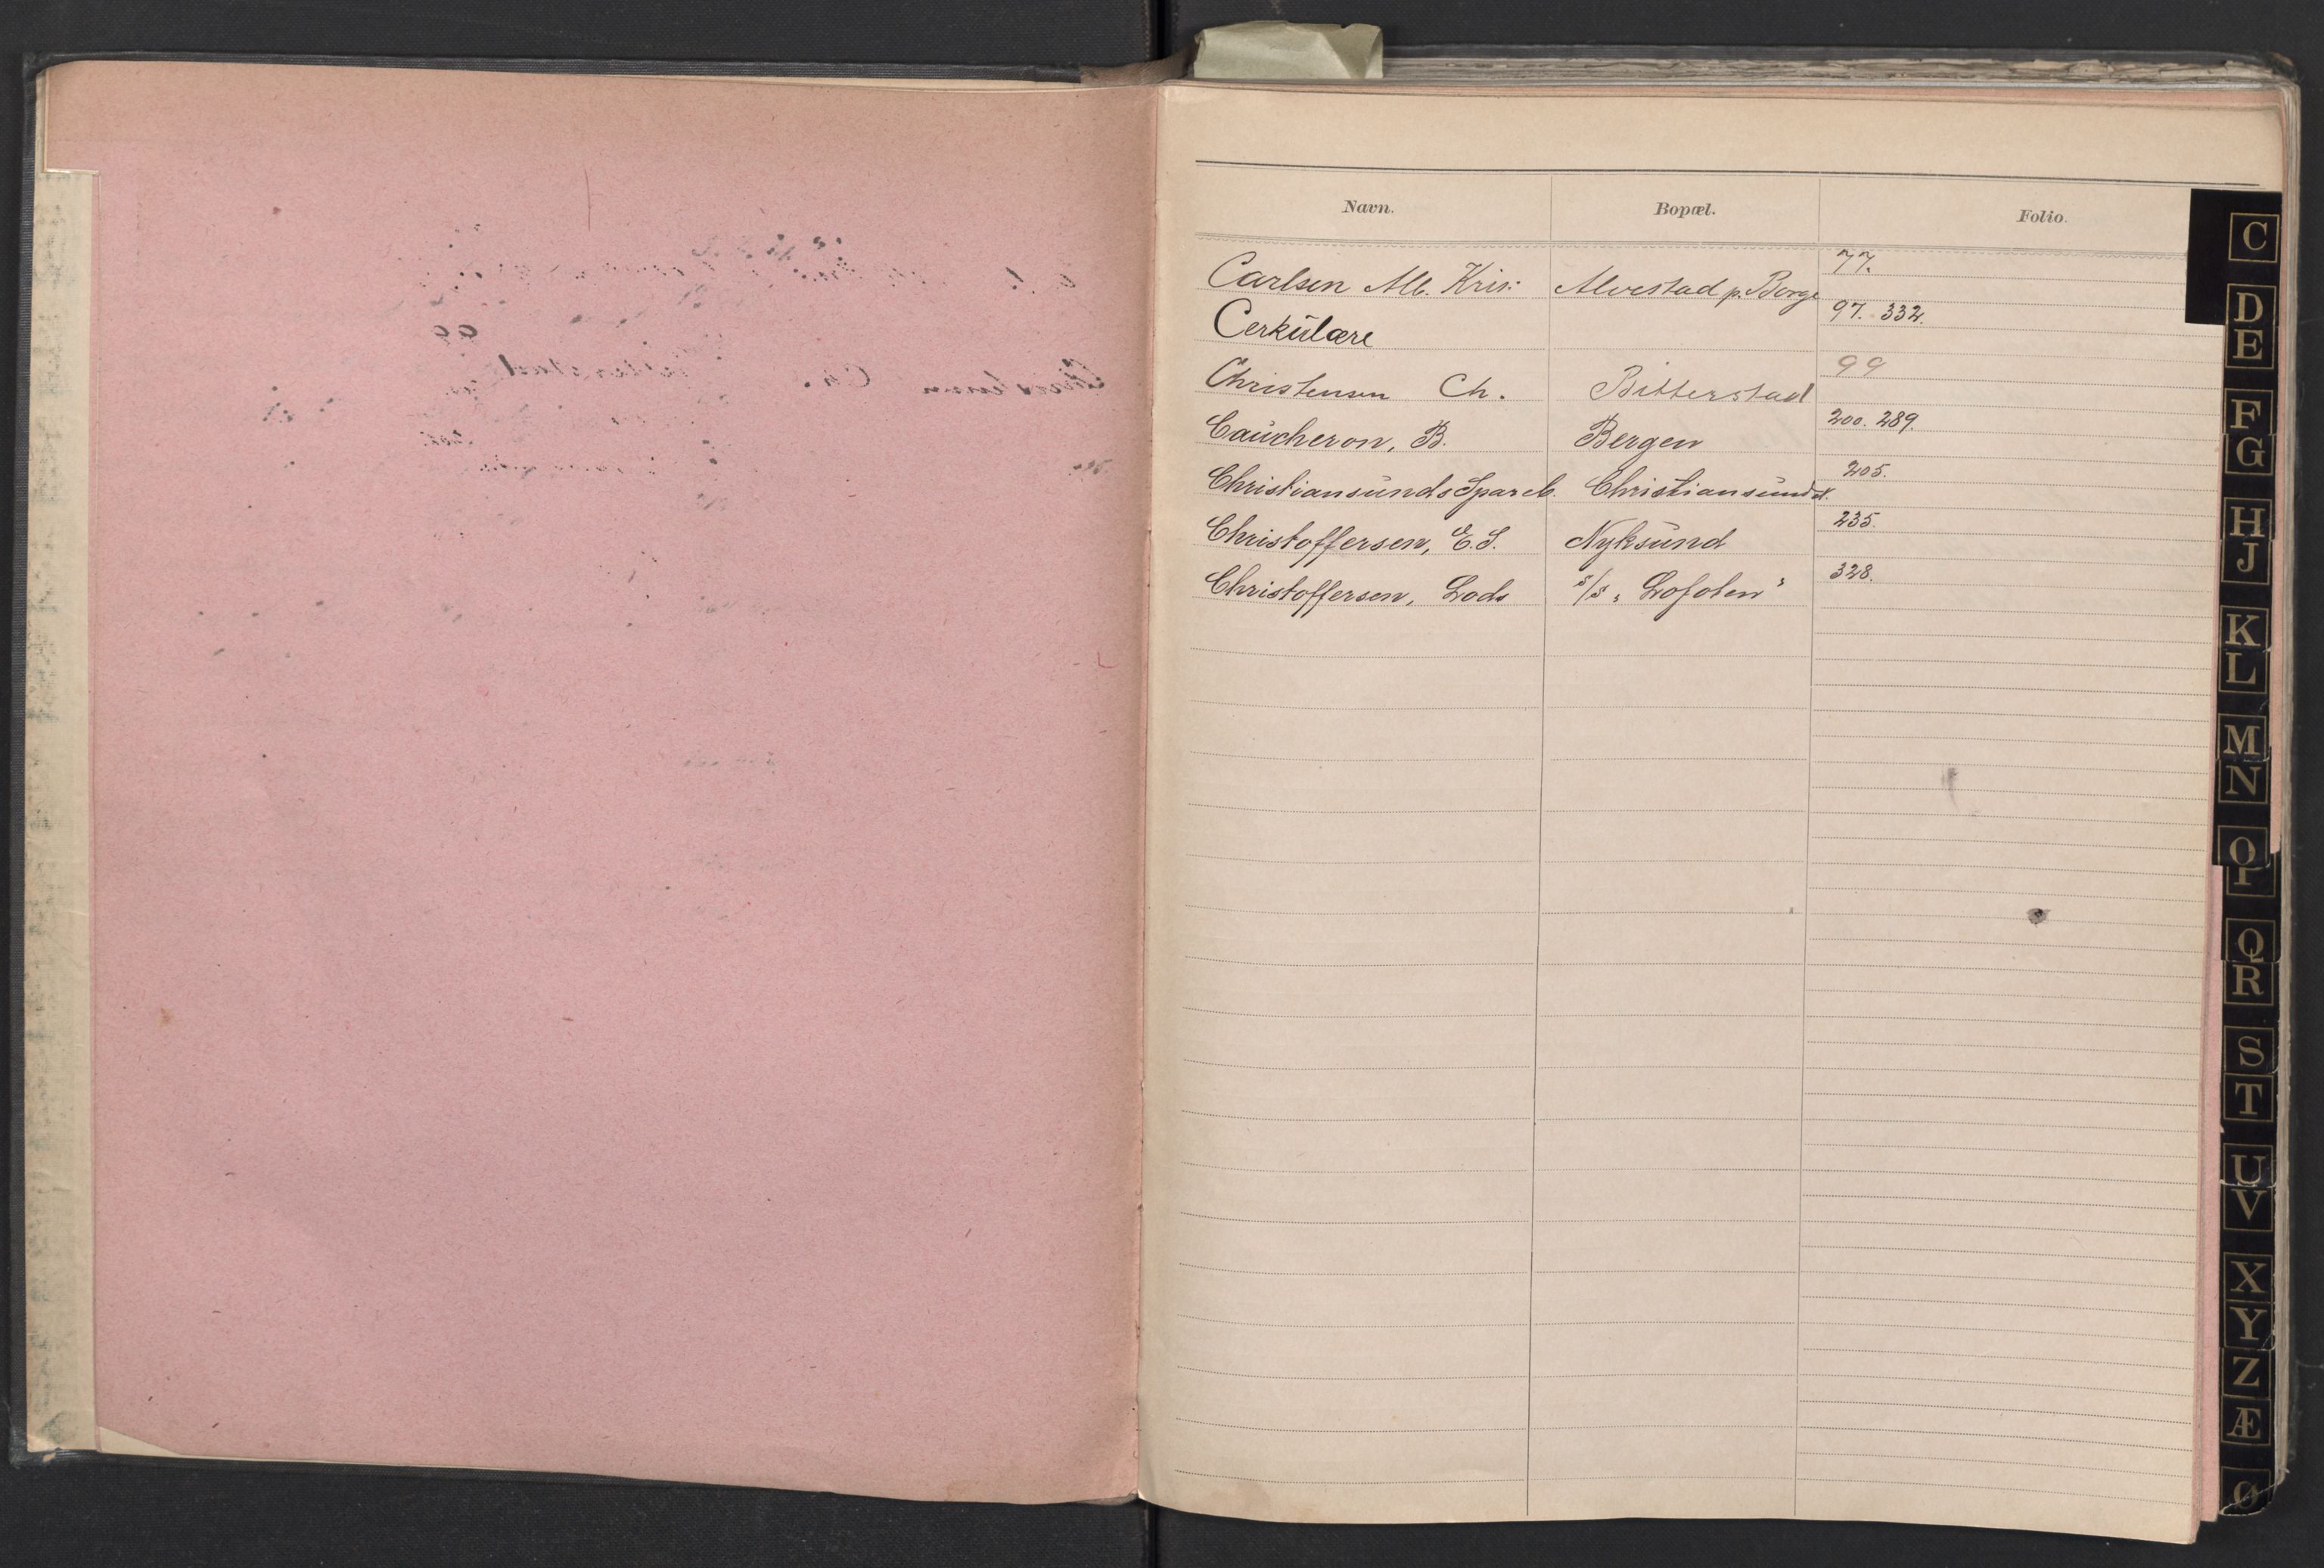 Navn. Bopæl. Folio.
Carlsen Alb. Kris: Alvestad p. Borge 77.
Cerkülære 97. 332.
Christensen Ch. Bitterstad 99
Caücheron, B. Bergen 200. 289.
Christiansünds Spareb. Christiansünd 205.
Christoffersen, E. S. Nyksünd 235.
Christoffersen, Lods s/s „Lofoten" 328.
C
D
E
F
G
H
J
K
L
M
N
O
P
Q
R
S
T
U
V
X
Y
Z
Æ
Ø